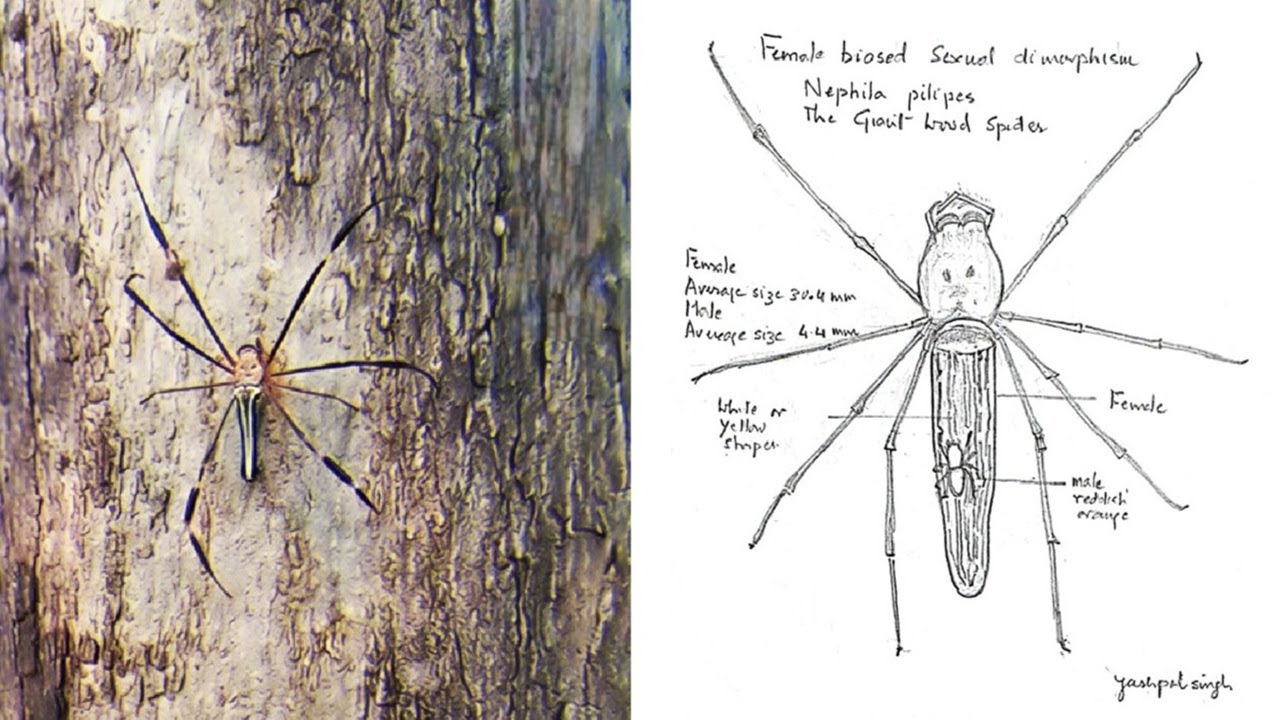 Female biased Sexual dimorphism
Nephila pilipes
The Giant wood Spider
Female
Average size 30.4 mm
Male
Average size 4.4 mm
White or
yellow
stripes
Female
male
reddish
orange
Yashpal singh